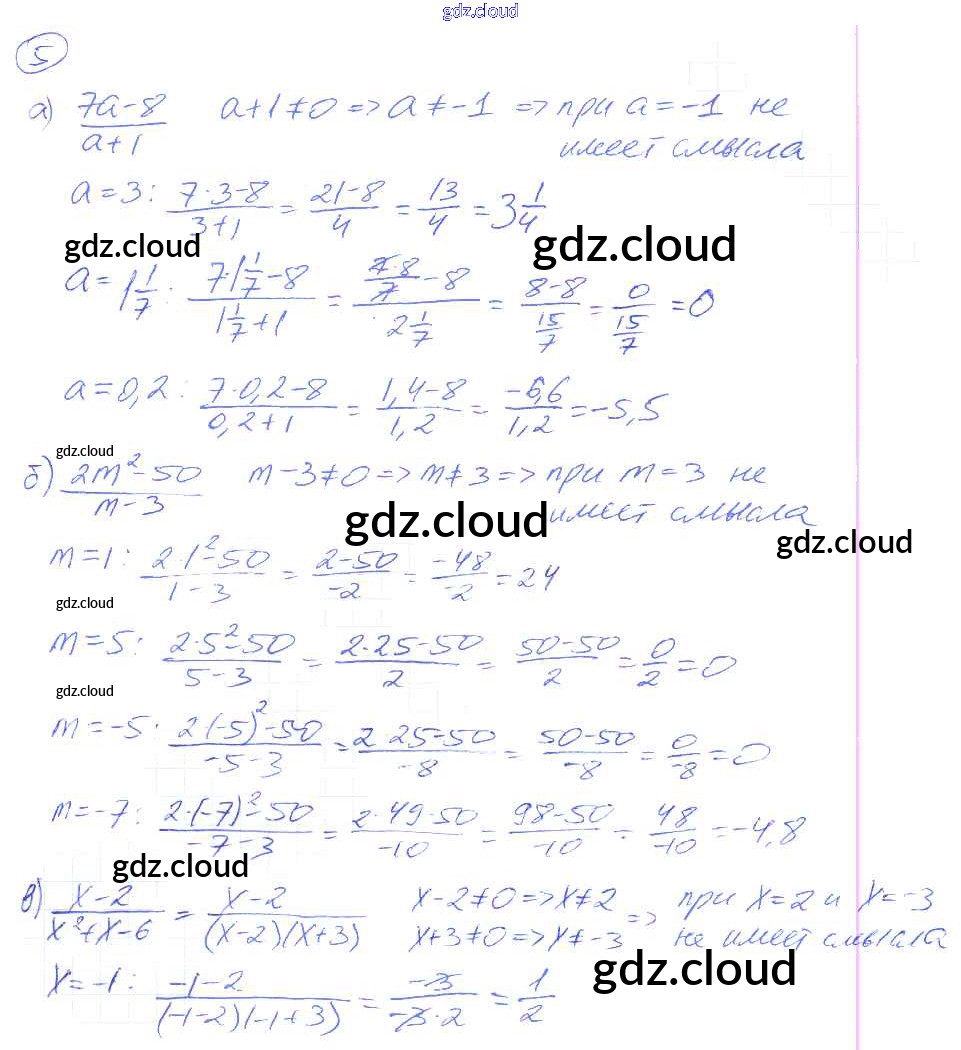 gdz.cloud
5
а) (7a-8)/(a+1) a+1≠0 => a≠-1 => при a=-1 не
имеет смысла
a=3: (7·3-8)/(3+1) = (21-8)/4 = 13/4 = 3 1/4
gdz.cloud gdz.cloud
a=1 1/7: (7·1 1/7-8)/(1 1/7+1) = (7·8/7-8)/(2 1/7) = (8-8)/(15/7) = 0/(15/7) = 0
a=0,2: (7·0,2-8)/(0,2+1) = (1,4-8)/1,2 = -6,6/1,2 = -5,5
gdz.cloud
б) (2m²-50)/(m-3) m-3≠0 => m≠3 => при m=3 не
gdz.cloud имеет смысла
gdz.cloud
m=1: (2·1²-50)/(1-3) = (2-50)/-2 = -48/-2 = 24
gdz.cloud
m=5: (2·5²-50)/(5-3) = (2·25-50)/2 = (50-50)/2 = 0/2 = 0
gdz.cloud
m=-5: (2(-5)²-50)/(-5-3) = (2·25-50)/-8 = (50-50)/-8 = 0/-8 = 0
m=-7: (2·(-7)²-50)/(-7-3) = (2·49-50)/-10 = (98-50)/-10 = 48/-10 = -4,8
gdz.cloud
в) (x-2)/(x²+x-6) = (x-2)/((x-2)(x+3)) x-2≠0 => x≠2 => при x=2 и x=-3
x+3≠0 => x≠-3 не имеет смысла
gdz.cloud
x=-1: (-1-2)/((-1-2)(-1+3)) = -3/(-3·2) = 1/2